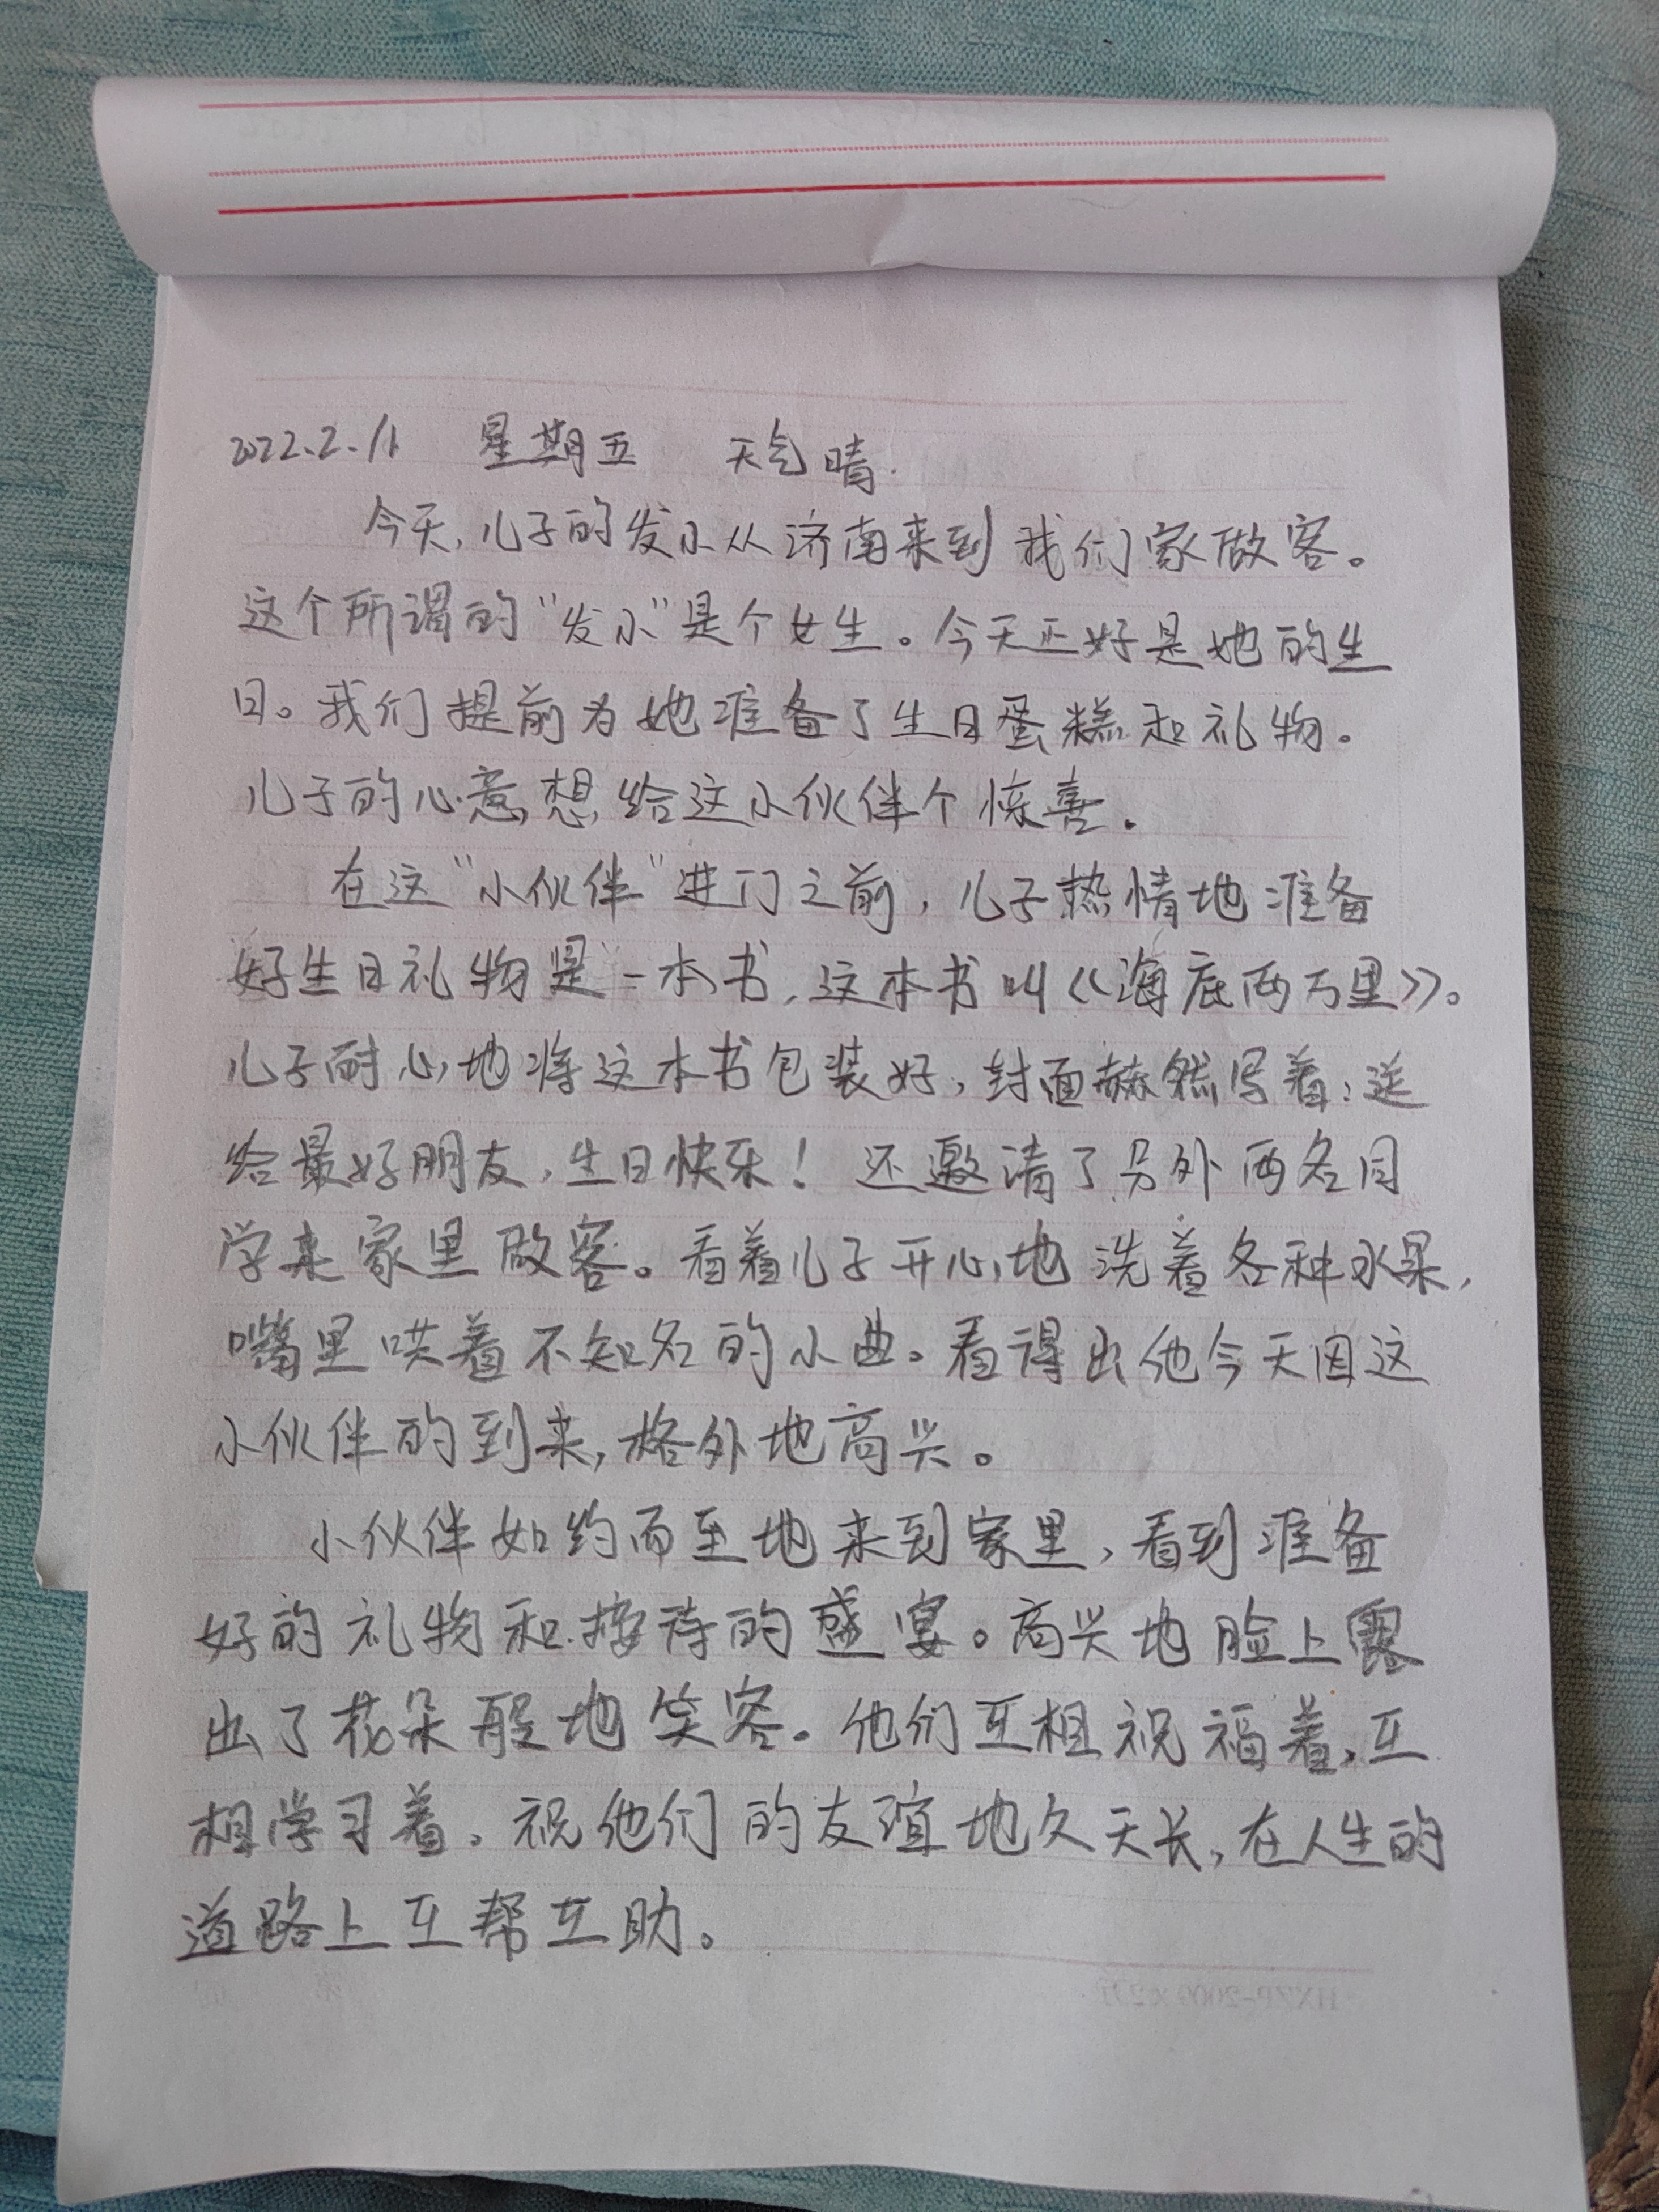 2022.2.11 星期五 天气晴.
今天,儿子的发小从济南来到我们家做客。
这个所谓的“发小”是个女生。今天正好是她的生
日。我们提前为她准备了生日蛋糕和礼物。
儿子的心意,想给这小伙伴个惊喜。
在这“小伙伴”进门之前,儿子热情地准备
好生日礼物是一本书,这本书叫《海底两万里》。
儿子耐心地将这本书包装好,封面赫然写着:送
给最好朋友,生日快乐!还邀请了另外两名同
学来家里做客。看着儿子开心地洗着各种水果,
嘴里哄着不知名的小曲。看得出他今天因这
小伙伴的到来,格外地高兴。
小伙伴如约而至地来到家里,看到准备
好的礼物和接待的盛宴。高兴地脸上露
出了花朵般地笑容。他们互相祝福着,互
相学习着。祝他们的友谊地久天长,在人生的
道路上互帮互助。
HXZP-2009×2万